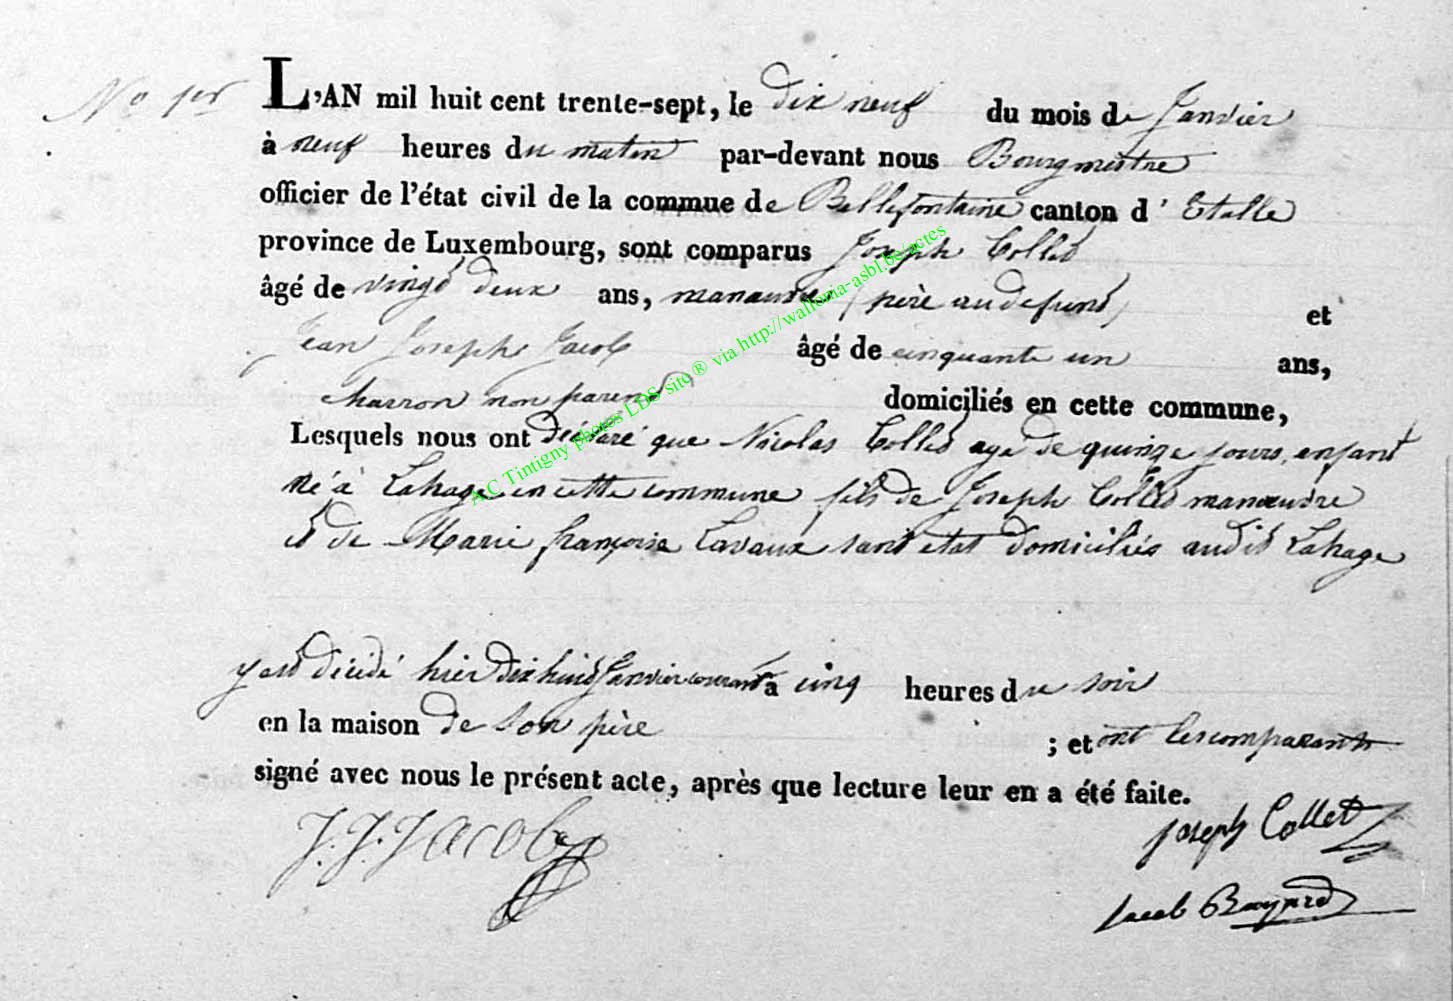 No 1er
L'AN mil huit cent trente-sept, le dix neuf du mois de Janvier
à neuf heures du matin par-devant nous Bourgmestre
officier de l'état civil de la commue de Bellefontaine canton d' Etalle
province de Luxembourg, sont comparus Joseph Collet
âgé de vingt deux ans, manœuvre (père au défunt) et
Jean Joseph Jacob âgé de cinquante un ans,
charron non parent domiciliés en cette commune,
Lesquels nous ont déclaré que Nicolas Collet agé de quinze jours, enfant
né à Lahage en cette commune fils de Joseph Collet manœuvre
et de Marie françoise Lavaux sans etat domiciliés audit Lahage
y est décédé hier dix huit Janvier courant à cinq heures du soir
en la maison de son père ; et ont les comparants
signé avec nous le présent acte, après que lecture leur en a été faite.
J. J. Jacob
Joseph Collet
Jacob Bayard
AC Tintigny photos LDS site® via http://wallonia-asbl.be/actes